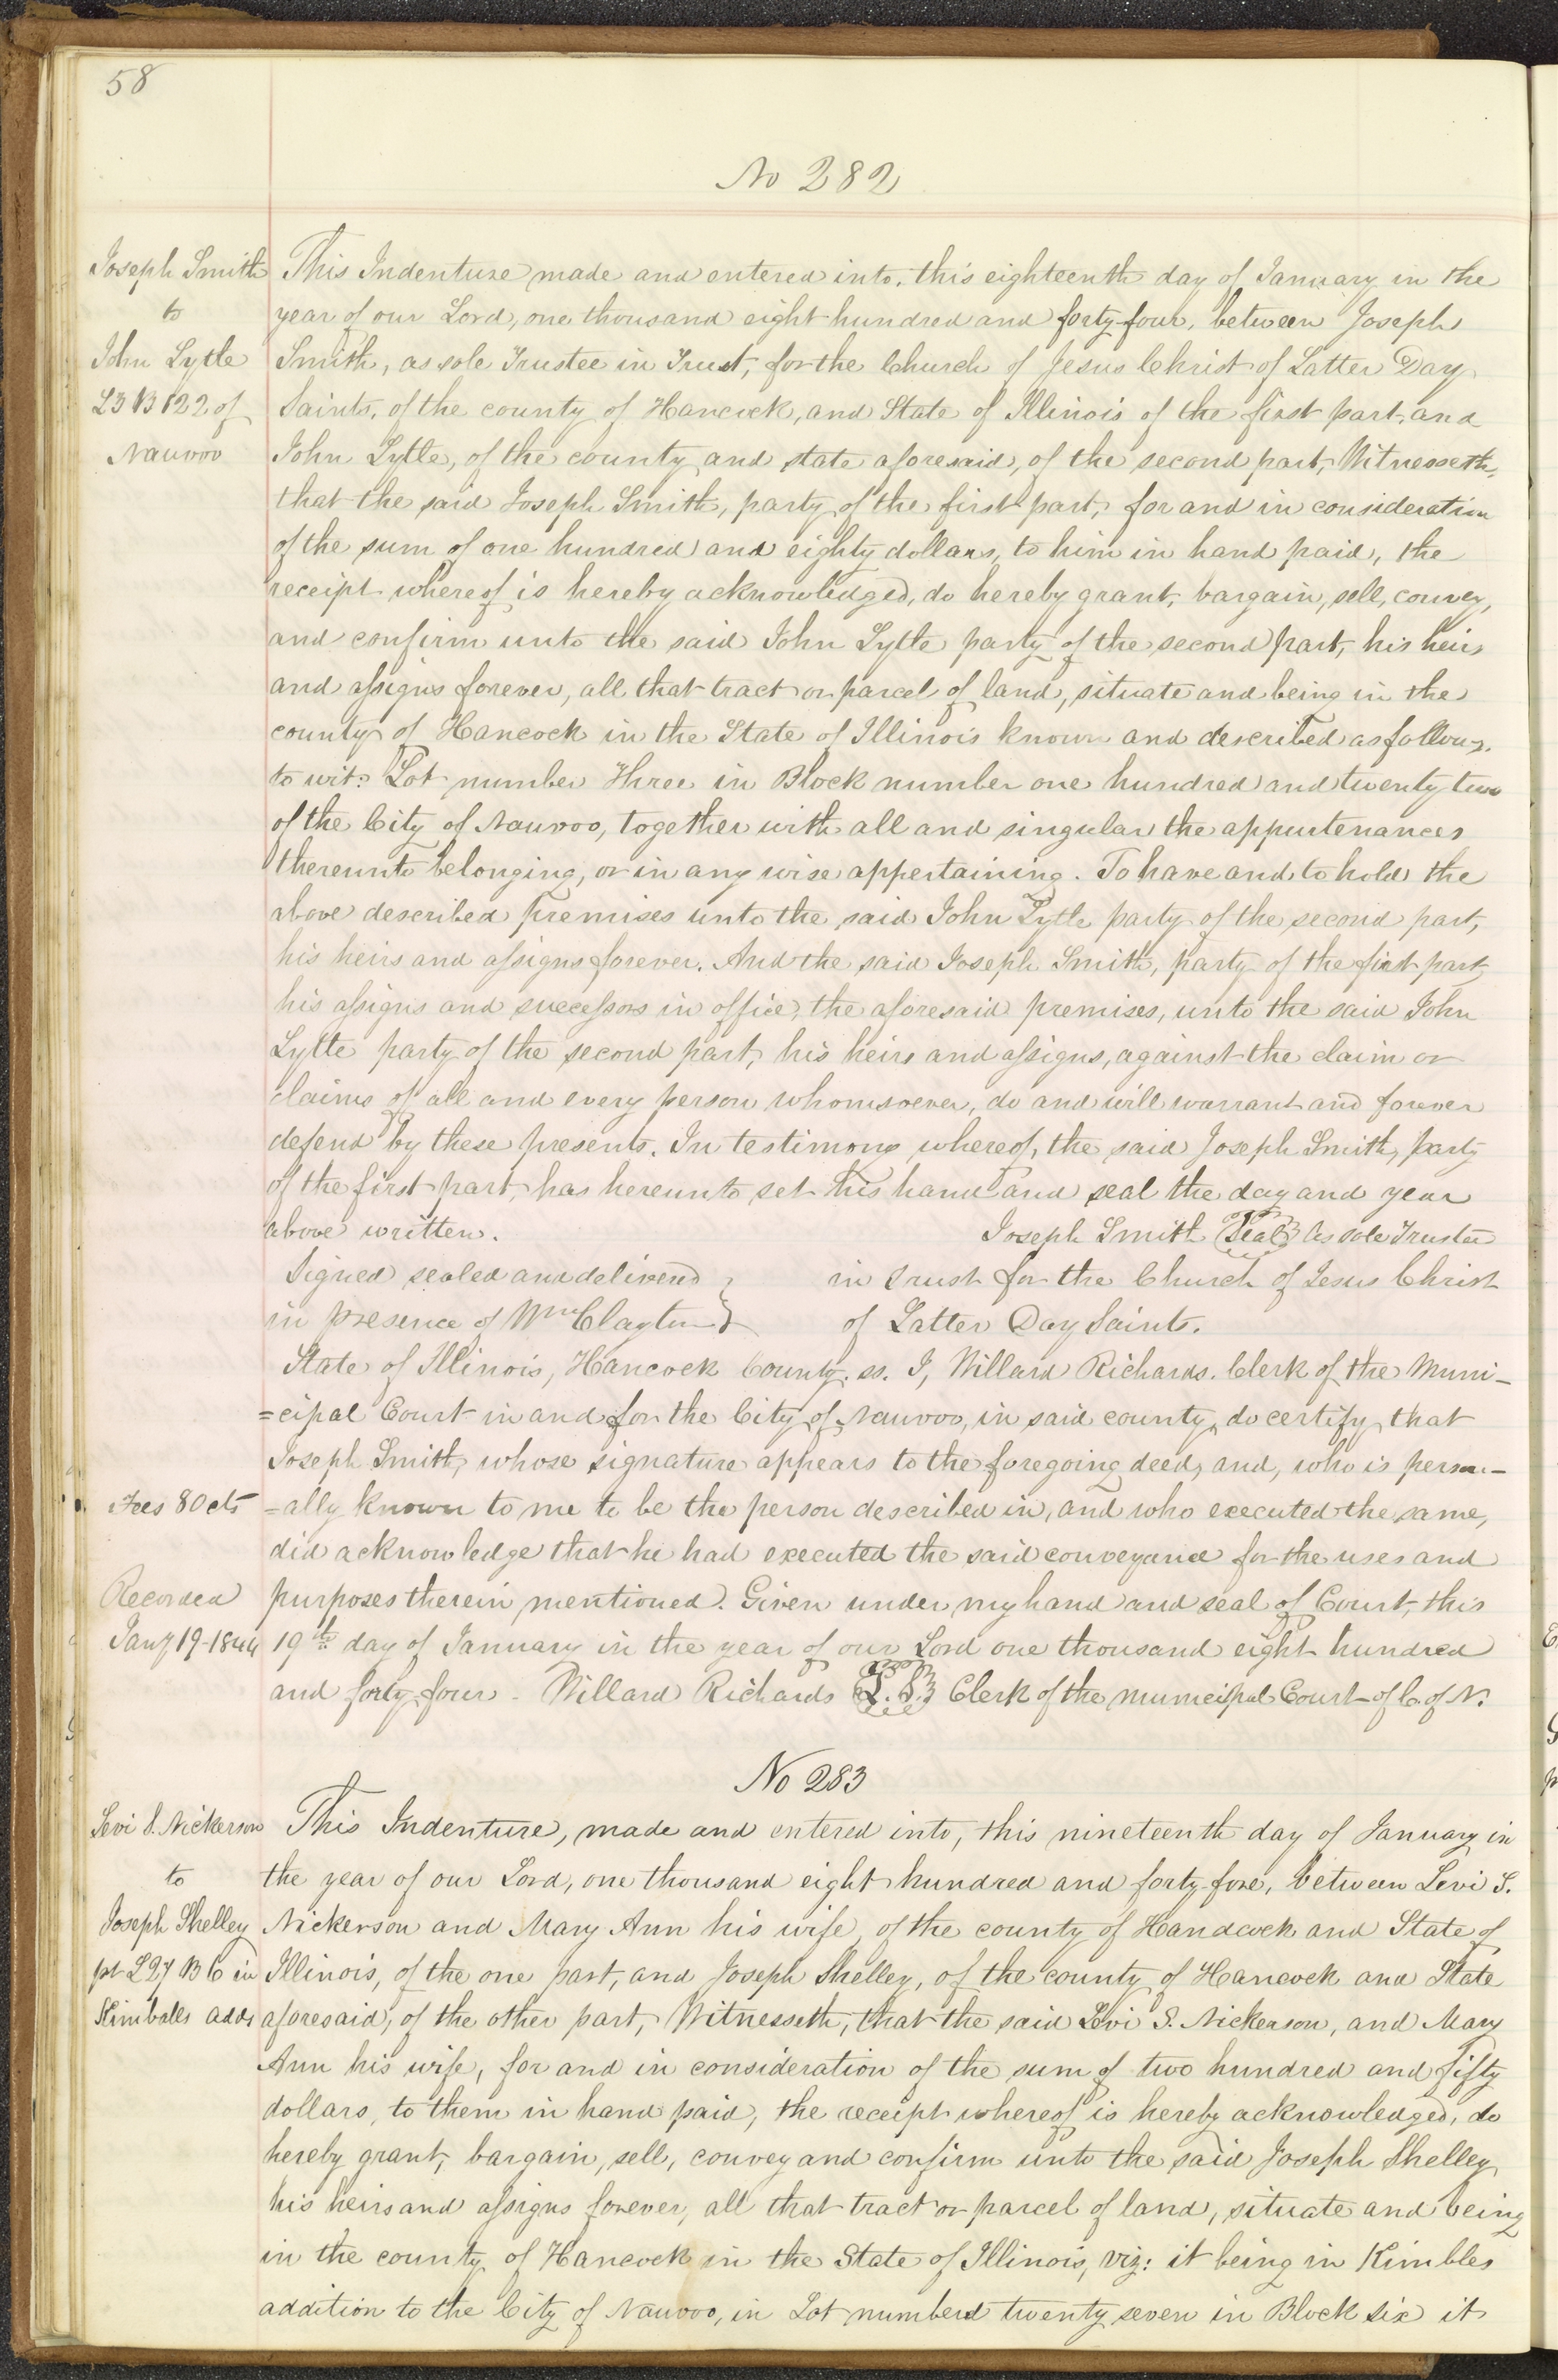 58
No 282
Joseph Smith
to
John Lytle
L3 B 122 of
Nauvoo
This Indenture made and entered into, this eighteenth day of January in the
year of our Lord, one thousand eight hundred and forty-four, between Joseph
Smith, as sole Trustee in Trust, for the Church of Jesus Christ of Latter Day
Saints, of the county of Hancock, and State of Illinois of the first part, and
John Lytle, of the county and state aforesaid, of the second part, Witnesseth,
that the said Joseph Smith, party of the first part, for and in consideration
of the sum of one hundred and eighty dollars, to him in hand paid, the
receipt whereof is hereby acknowledged, do hereby grant, bargain, sell, convey,
and confirm unto the said John Lytle party of the second part, his heirs
and assigns forever, all that tract or parcel of land, situate and being in the
county of Hancock in the State of Illinois known and described as follows.
to wit: Lot number Three in Block number one hundred and twenty two
of the City of Nauvoo, together with all and singular the appurtenances
thereunto belonging, or in any wise appertaining. To have and to hold the
above described premises unto the said John Lytle party of the second part,
his heirs and assigns forever. And the said Joseph Smith, party of the first part,
his assigns and successors in office, the aforesaid premises, unto the said John
Lytle party of the second part, his heirs and assigns, against the claim or
claims of all and every person whomsoever, do and will warrant and forever
defend by these presents. In testimony whereof, the said Joseph Smith, party
of the first part, has hereunto set his hand and seal the day and year
above written. Joseph Smith Seal As sole Trustee
Signed sealed and delivered } in Trust for the Church of Jesus Christ
in presence of Wm Clayton } of Latter Day Saints.
State of Illinois, Hancock County. ss. I, Willard Richards. Clerk of the Muni-
=cipal Court in and for the City of Nauvoo, in said county, do certify, that
Joseph Smith, whose signature appears to the foregoing deed, and, who is person-
Fees 80 cts
=ally known to me to be the person described in, and who executed the same,
did acknowledge that he had executed the said conveyance for the uses and
Recorded
purposes therein mentioned. Given under my hand and seal of Court, this
Jany 19-1844
19th day of January in the year of our Lord one thousand eight hundred
and forty four - Willard Richards L.S. Clerk of the Municipal Court of C. of N.
No 283
Levi S. Nickerson
to
Joseph Shelley
pt L27 B 6 in
Kimballs adds
This Indenture, made and entered into, this nineteenth day of January in
the year of our Lord, one thousand eight hundred and forty four, between Levi S.
Nickerson and Mary Ann his wife, of the county of Handcock and State of
Illinois, of the one part, and Joseph Shelley, of the county of Hancock and State
aforesaid, of the other part, Witnesseth, that the said Levi S. Nickerson, and Mary
Ann his wife, for and in consideration of the sum of two hundred and fifty
dollars, to them in hand paid, the receipt whereof is hereby acknowledged, do
hereby grant, bargain, sell, convey and confirm unto the said Joseph Shelley,
his heirs and assigns forever, all that tract or parcel of land, situate and being
in the county of Hancock in the State of Illinois, viz: it being in Kimbles
addition to the City of Nauvoo, in Lot numberd twenty seven in Block six it